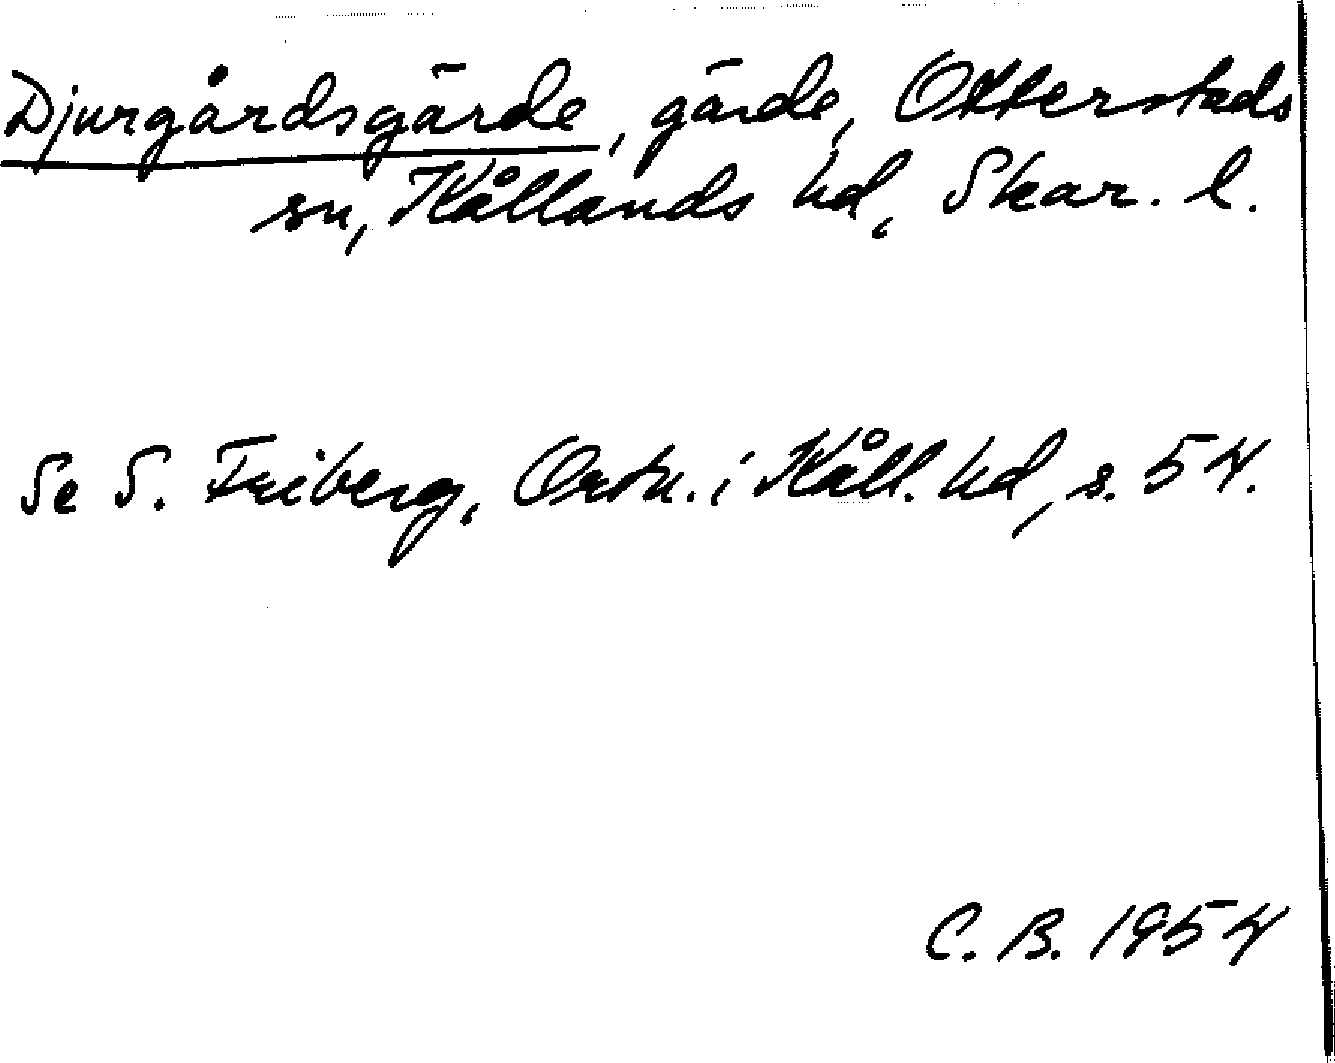 Djurgårdsgärde, gärde, Otterstads
sn, Kållands hd, Skar. l.
Se S. Friberg, Ortn. i Kåll. hd, s. 54.
C. B. 1954